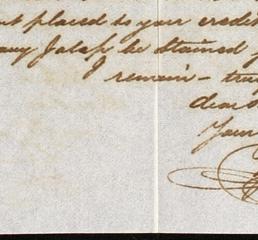 placed to your credit
any Jalap be obtained
I remain - truly
dear
Your